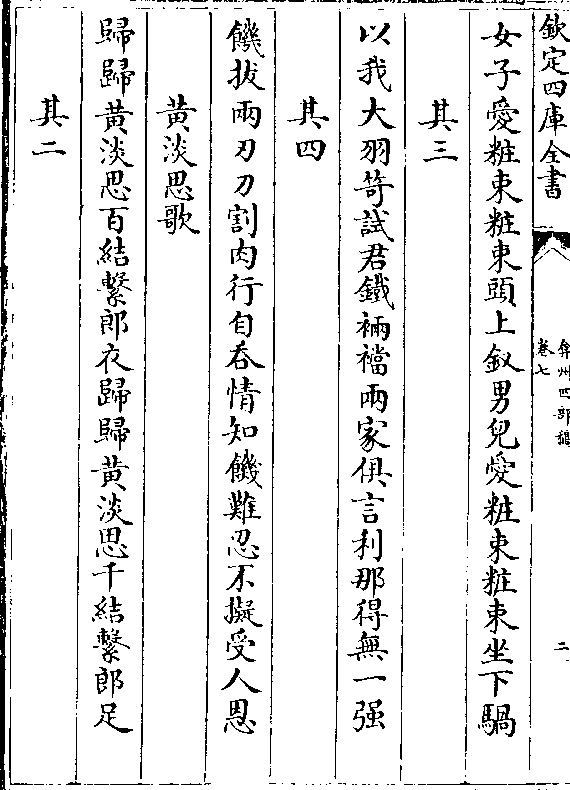 欽定四庫全書
弇州四部稿
卷七
二
女子愛粧束粧束頭上釵男兒愛粧束粧束坐下騧
其三
以我大羽箭試君鐵裲襠兩家俱言利那得無一强
其四
饑拔兩刃刀割肉行自吞情知饑難忍不擬受人恩
黄淡思歌
歸歸黄淡思百結繫郎衣歸歸黄淡思千結繫郎足
其二